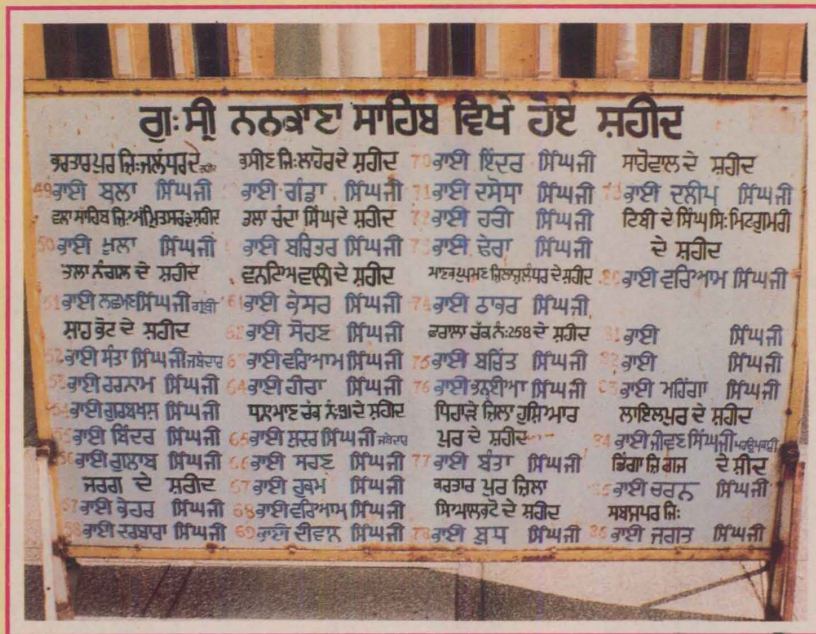 ਗੁ: ਸ੍ਰੀ ਨਨਕਾਣਾ ਸਾਹਿਬ ਵਿਖੇ ਹੋਏ ਸ਼ਹੀਦ
ਕਰਤਾਰਪੁਰ ਜ਼ਿ:ਜਲੰਧਰ ਦੇ
49 ਭਾਈ ਬੂਲਾ ਸਿੰਘ ਜੀ
ਸਾਹਿਬ ਜ਼ਿ:ਅੰਮ੍ਰਿਤਸਰ ਸ਼ਹੀਦ
50 ਭਾਈ ਖੁਲਾ ਸਿੰਘ ਜੀ
ਤਲਾ ਨੰਗਲ ਦੇ ਸ਼ਹੀਦ
51 ਭਾਈ ਲਛਮਣ ਸਿੰਘ ਜੀ
ਸ਼ਾਹ ਕੋਟ ਦੇ ਸ਼ਹੀਦ
52 ਭਾਈ ਸੰਤਾ ਸਿੰਘ ਜੀ ਜਥੇਦਾਰ
53 ਭਾਈ ਹਰਨਾਮ ਸਿੰਘ ਜੀ
54 ਭਾਈ ਗੁਰਬਖਸ਼ ਸਿੰਘ ਜੀ
55 ਭਾਈ ਬਿੰਦਰ ਸਿੰਘ ਜੀ
56 ਭਾਈ ਗੁਲਾਬ ਸਿੰਘ ਜੀ
ਜਰਗ ਦੇ ਸ਼ਹੀਦ
57 ਭਾਈ ਕੇਹਰ ਸਿੰਘ ਜੀ
58 ਭਾਈ ਦਰਬਾਰਾ ਸਿੰਘ ਜੀ
ਭਸੀਣ ਜਿ:ਲਾਹੋਰ ਦੇ ਸ਼ਹੀਦ
ਭਾਈ ਗੰਡਾ ਸਿੰਘ ਜੀ
ਚੰਦਾ ਸਿੰਘ ਦੇ ਸ਼ਹੀਦ
ਭਾਈ ਬਰਿਤਰ ਸਿੰਘ ਜੀ
ਦੇ ਸ਼ਹੀਦ
61 ਭਾਈ ਕੇਸਰ ਸਿੰਘ ਜੀ
62 ਭਾਈ ਸੋਹਣ ਸਿੰਘ ਜੀ
63 ਭਾਈ ਵਰਿਆਮ ਸਿੰਘ ਜੀ
64 ਭਾਈ ਹੀਰਾ ਸਿੰਘ ਜੀ
ਚੱਕ ਨੰ:91 ਦੇ ਸ਼ਹੀਦ
65 ਭਾਈ ਸੁਦਰ ਸਿੰਘ ਜੀ ਜਥੇਦਾਰ
66 ਭਾਈ ਸਰਣ ਸਿੰਘ ਜੀ
67 ਭਾਈ ਹੁਕਮ ਸਿੰਘ ਜੀ
68 ਭਾਈ ਵਰਿਆਮ ਸਿੰਘ ਜੀ
69 ਭਾਈ ਦੀਵਾਨ ਸਿੰਘ ਜੀ
70 ਭਾਈ ਇੰਦਰ ਸਿੰਘ ਜੀ
71 ਭਾਈ ਦਸੋਧਾ ਸਿੰਘ ਜੀ
72 ਭਾਈ ਹਰੀ ਸਿੰਘ ਜੀ
73 ਭਾਈ ਢੇਰਾ ਸਿੰਘ ਜੀ
ਮਾਣਕ ਘੁਮਣ ਜ਼ਿਲਾ ਜਲੰਧਰ ਦੇ ਸ਼ਹੀਦ
74 ਭਾਈ ਠਾਕਰ ਸਿੰਘ ਜੀ
ਚੱਕ ਨੰ:258 ਦੇ ਸ਼ਹੀਦ
75 ਭਾਈ ਬਰਿੰਤ ਸਿੰਘ ਜੀ
76 ਭਾਈ ਕਨ੍ਹਈਆ ਸਿੰਘ ਜੀ
ਜ਼ਿਲਾ ਹੁਸ਼ਿਆਰ
ਪੁਰ ਦੇ ਸ਼ਹੀਦ
77 ਭਾਈ ਬੰਤਾ ਸਿੰਘ ਜੀ
ਕਰਤਾਰ ਪੁਰ ਜ਼ਿਲਾ
ਸਿਆਲਕੋਟ ਦੇ ਸ਼ਹੀਦ
78 ਭਾਈ ਬੁਧ ਸਿੰਘ ਜੀ
ਸਾਹੋਵਾਲ ਦੇ ਸ਼ਹੀਦ
79 ਭਾਈ ਦਲੀਪ ਸਿੰਘ ਜੀ
ਟਿਬੀ ਦੇ ਸਿੰਘ ਜਿ:ਮਿਟਗੁਮਰੀ
ਦੇ ਸ਼ਹੀਦ
80 ਭਾਈ ਵਰਿਆਮ ਸਿੰਘ ਜੀ
81 ਭਾਈ ਸਿੰਘ ਜੀ
82 ਭਾਈ ਸਿੰਘ ਜੀ
83 ਭਾਈ ਮਹਿੰਗਾ ਸਿੰਘ ਜੀ
ਲਾਇਲਪੁਰ ਦੇ ਸ਼ਹੀਦ
84 ਭਾਈ ਜੀਵਣ ਸਿੰਘ ਜੀ
ਡਿੰਗਾ ਜ਼ਿ ਗੁਜ ਦੇ ਸ਼ੀਦ
85 ਭਾਈ ਚਰਨ ਸਿੰਘ ਜੀ
86 ਭਾਈ ਜਗਤ ਸਿੰਘ ਜੀ